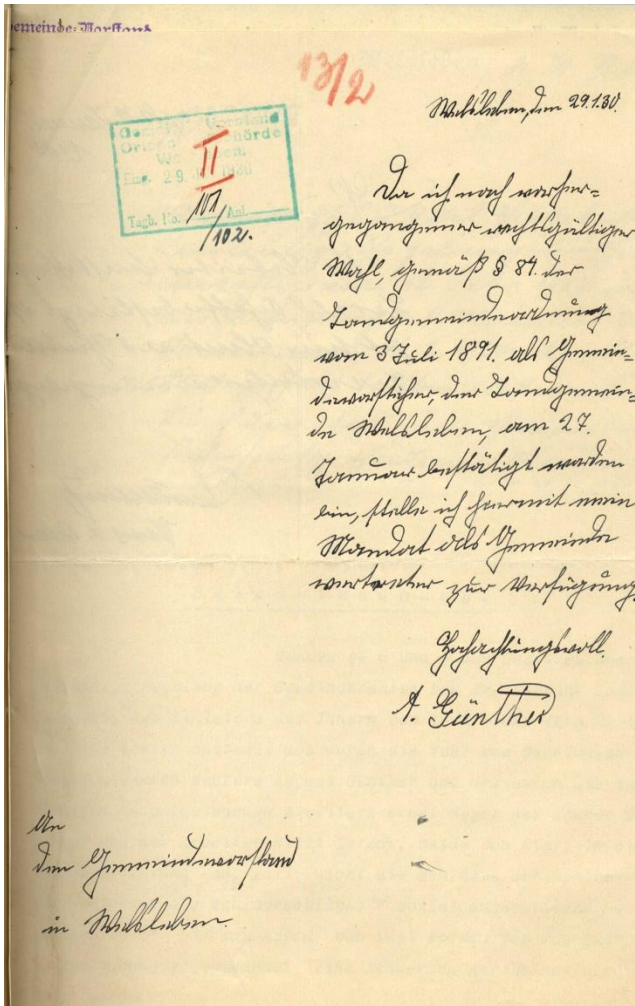 Gemeinde-Vorstand
13/2
Welsleben, den 29.1.30.
Gemeinde Vorstand
Ortspolizeibehörde
Wels ben.
Eing. 29. J 1930
II
Tagb. No. 101 Anl.
/102.
Da ich nach vorher=
gegangener rechtsgültiger
Wahl, gemäß § 84. der
Landgemeindeordnung
vom 3 Juli 1891. als Gemein=
devorsteher, der Landgemein=
de Welsleben, am 27.
Januar bestätigt worden
bin, stelle ich hiermit mein
Mandat als Gemeinde
vertreter zur Verfügung.
Hochachtungsvoll.
A. Günther
An
den Gemeindevorstand
in Welsleben.